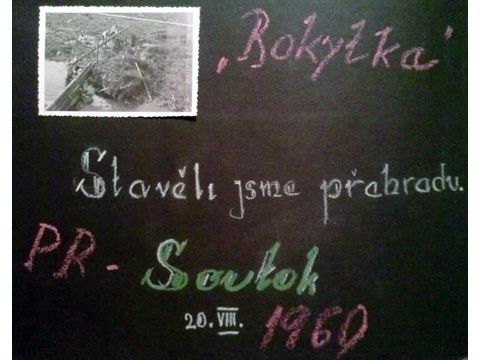 „Rokytka"
Stavěli jsme přehradu.
PR - Soutok
20. VIII. 1960